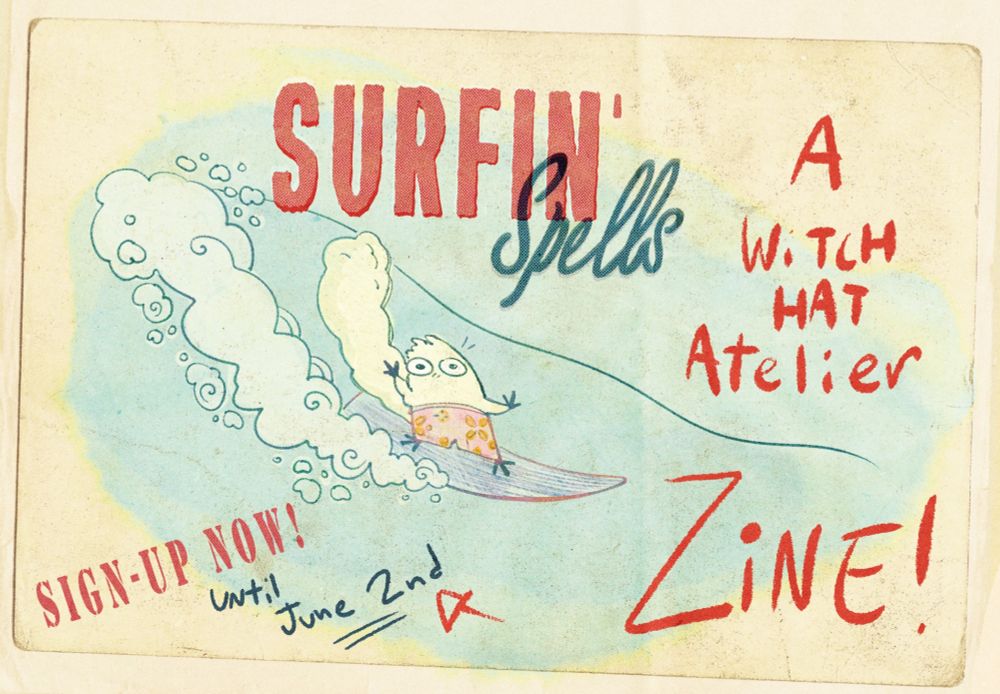 SURFIN'
Spells
A
WiTCH
HAT
Atelier
ZiNE!
SIGN-UP NOW!
until
June 2nd